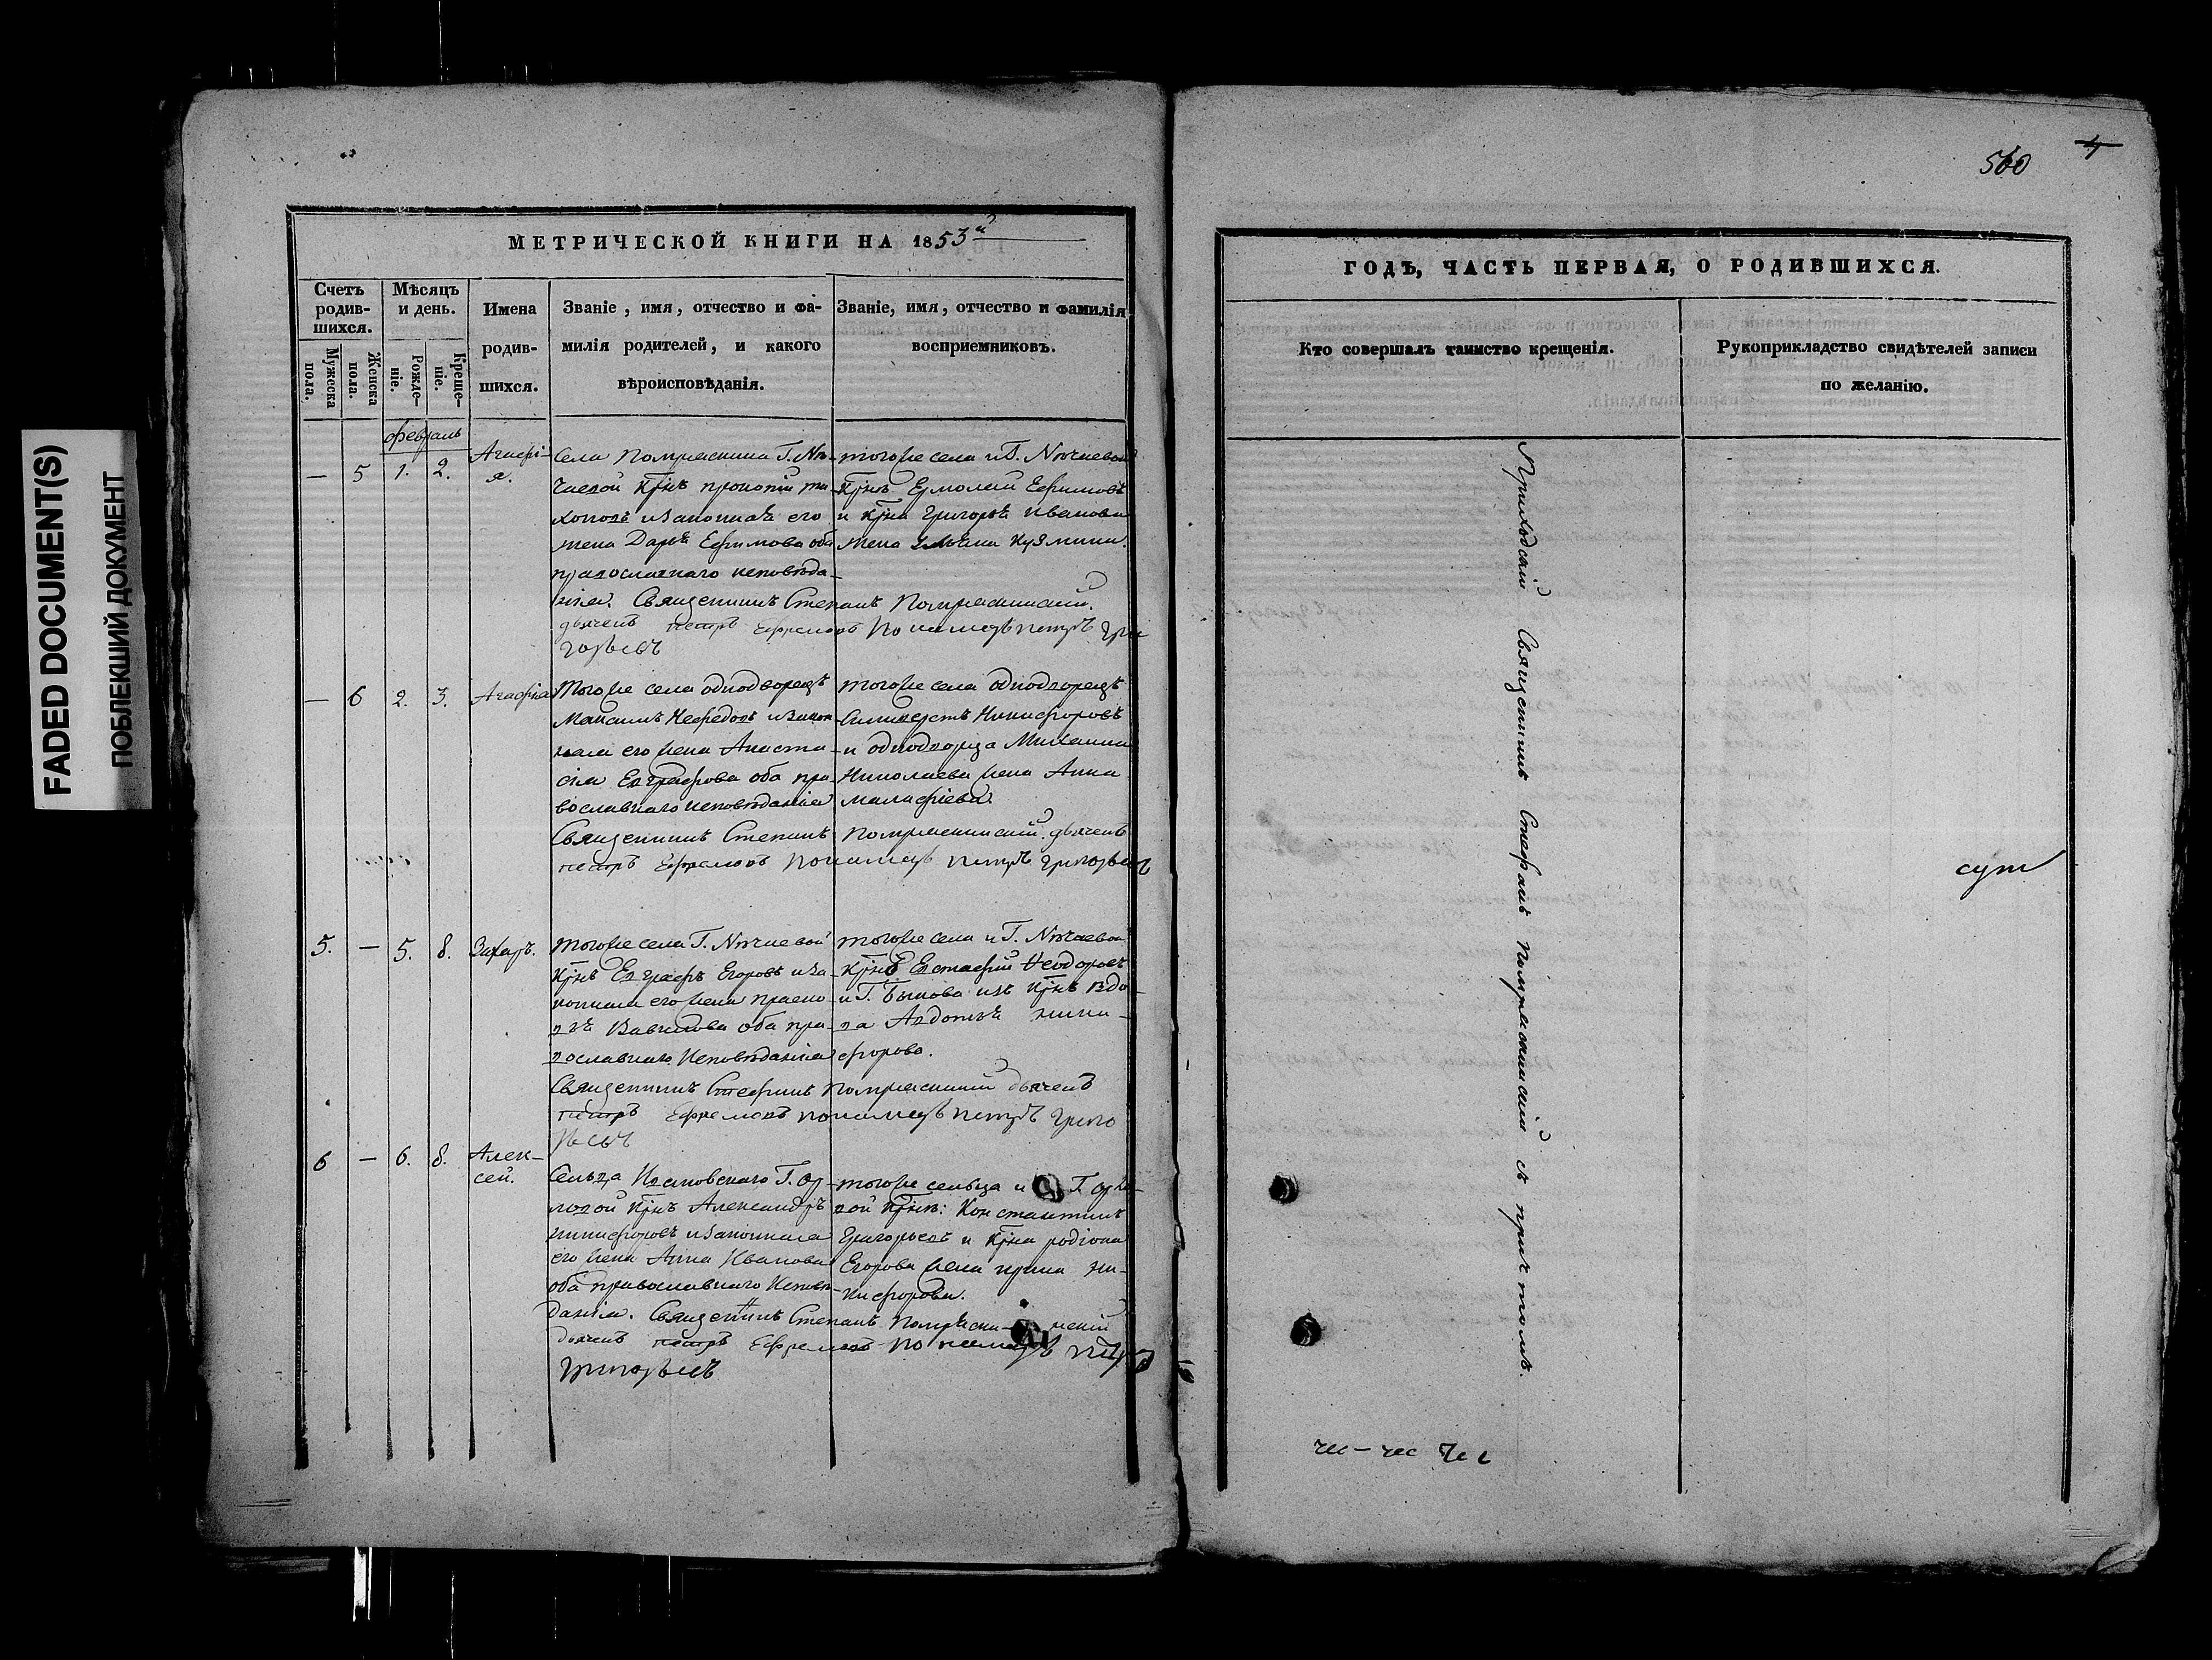 FADED DOCUMENT(S)
ПОБЛЕКШИЙ ДОКУМЕНТ
МЕТРИЧЕСКОЙ КНИГИ НА 1853й
Счетъ родив-шихся.
Мужеска пола.
Женска пола.
Мѣсяцъ и день.
Рожде-ніе.
Креще-ніе.
Имена родив-шихся.
Званіе, имя, отчество и фа-
милія родителей, и какого
вѣроисповѣданія.
Званіе, имя, отчество и фамилія
воспріемниковъ.
февраль
— 5 1. 2. Агафі-
я.
Села Г. Не-
чаевой Крнъ Прокопій Ти-
хоновъ и законная его
жена Дарья Ефимова оба
православнаго исповѣда-
нія. Священникъ Степанъ
дьячекъ Петръ Ефремовъ Пономарь Петръ Гри
горьевъ
тогоже села и Г. Нечаевой
Крнъ Ермолай Ефимовъ
и Крна Григорья Иванова
жена Ульяна Кузмина.
— 6 2. 3. Агафія
Тогоже села однодворецъ
Максимъ Нефедовъ и закон
ная его жена Анаста-
сія Евграфова оба пра-
вославнаго исповѣданія
Священникъ Степанъ дьячекъ
Петръ Ефремовъ Пономарь Петръ Григорьевъ
тогоже села однодворецъ
Силиверстъ Никифоровъ
и однодворца Михаила
Николаева жена Анна
Малафіева.
5. — 5. 8. Захаръ.
тогоже села Г. Нечаевой
Крнъ Евграфъ Егоровъ и за-
конная его жена Праско-
вья Вавилова оба пра-
вославнаго Исповѣданія
Священникъ Стефанъ дьячекъ
Петръ Ефремовъ пономарь Петръ Григо
рьевъ
тогоже села и Г. Нечаевой
Крнъ Евстафій Ѳеодоровъ
и Г. Быкова изъ Крнъ вдо-
ва Авдотья Ники-
форова.
6 — 6. 8. Алек-
сей.
Сельца Г. Ор-
ловой Крнъ Александръ
Никифоровъ и законная
его жена Анна Иванова
оба православнаго Исповѣ-
данія. Священникъ Степанъ
дьячекъ Петръ Ефремовъ пономарь Петръ
Григорьевъ
тогоже сельца и Г. Орло-
вой Крнъ: Константинъ
Григорьевъ и Крна Родіона
Егорова жена Ирина Ни-
кифорова.
560 4
ГОДЪ, ЧАСТЬ ПЕРВАЯ, О РОДИВШИХСЯ.
Кто совершалъ таинство крещенія.
Рукоприкладство свидѣтелей записи
по желанію.
Приходскій Священникъ Стефанъ съ причтомъ.